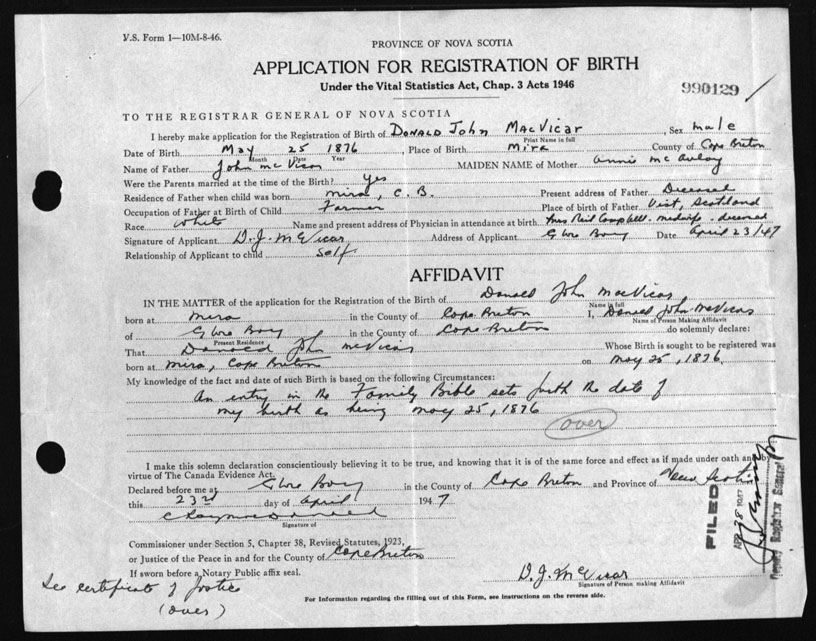 V.S. Form 1—10M-8-46.
PROVINCE OF NOVA SCOTIA
APPLICATION FOR REGISTRATION OF BIRTH
Under the Vital Statistics Act, Chap. 3 Acts 1946
990129
TO THE REGISTRAR GENERAL OF NOVA SCOTIA
I hereby make application for the Registration of Birth of Donald John MacVicar, Sex male
Print Name in full
Date of Birth May 25 1876, Place of Birth Mira County of Cape Breton
Month Date Year
Name of Father John McVicar MAIDEN NAME of Mother Annie McAulay
Were the Parents married at the time of the Birth? Yes
Residence of Father when child was born Mira, C.B. Present address of Father Deceased
Occupation of Father at Birth of Child Farmer Place of birth of Father Uist, Scotland
Race White Name and present address of Physician in attendance at birth Mrs Neil Campbell - midwife - deceased
Signature of Applicant D.J. McVicar Address of Applicant Glace Bay Date April 23/47
Relationship of Applicant to child self
AFFIDAVIT
IN THE MATTER of the application for the Registration of Birth of Donald John MacVicar
Name in full
born at Mira in the County of Cape Breton I, Donald John McVicar
Name of Person Making Affidavit
of Glace Bay in the County of Cape Breton do solemnly declare:
Present Residence
That Donald John McVicar Whose Birth is sought to be registered was
born at Mira, Cape Breton on May 25, 1876.
My knowledge of the fact and date of such Birth is based on the following Circumstances:
An entry in the Family Bible sets forth the date of
my birth as being May 25, 1876
over
I make this solemn declaration conscientiously believing it to be true, and knowing that it is of the same force and effect as if made under oath and by
virtue of The Canada Evidence Act.
Declared before me at Glace Bay in the County of Cape Breton and Province of Nova Scotia
this 23rd day of April 1947
Signature of
Commissioner under Section 5, Chapter 38, Revised Statutes, 1923,
or Justice of the Peace in and for the County of Cape Breton
If sworn before a Notary Public affix seal.
D.J. McVicar
Signature of Person making Affidavit
See certificate of Justice
(over)
For Information regarding the filling out of this Form, see instructions on the reverse side.
FILED
APR 28 1947
Deputy Registrar General